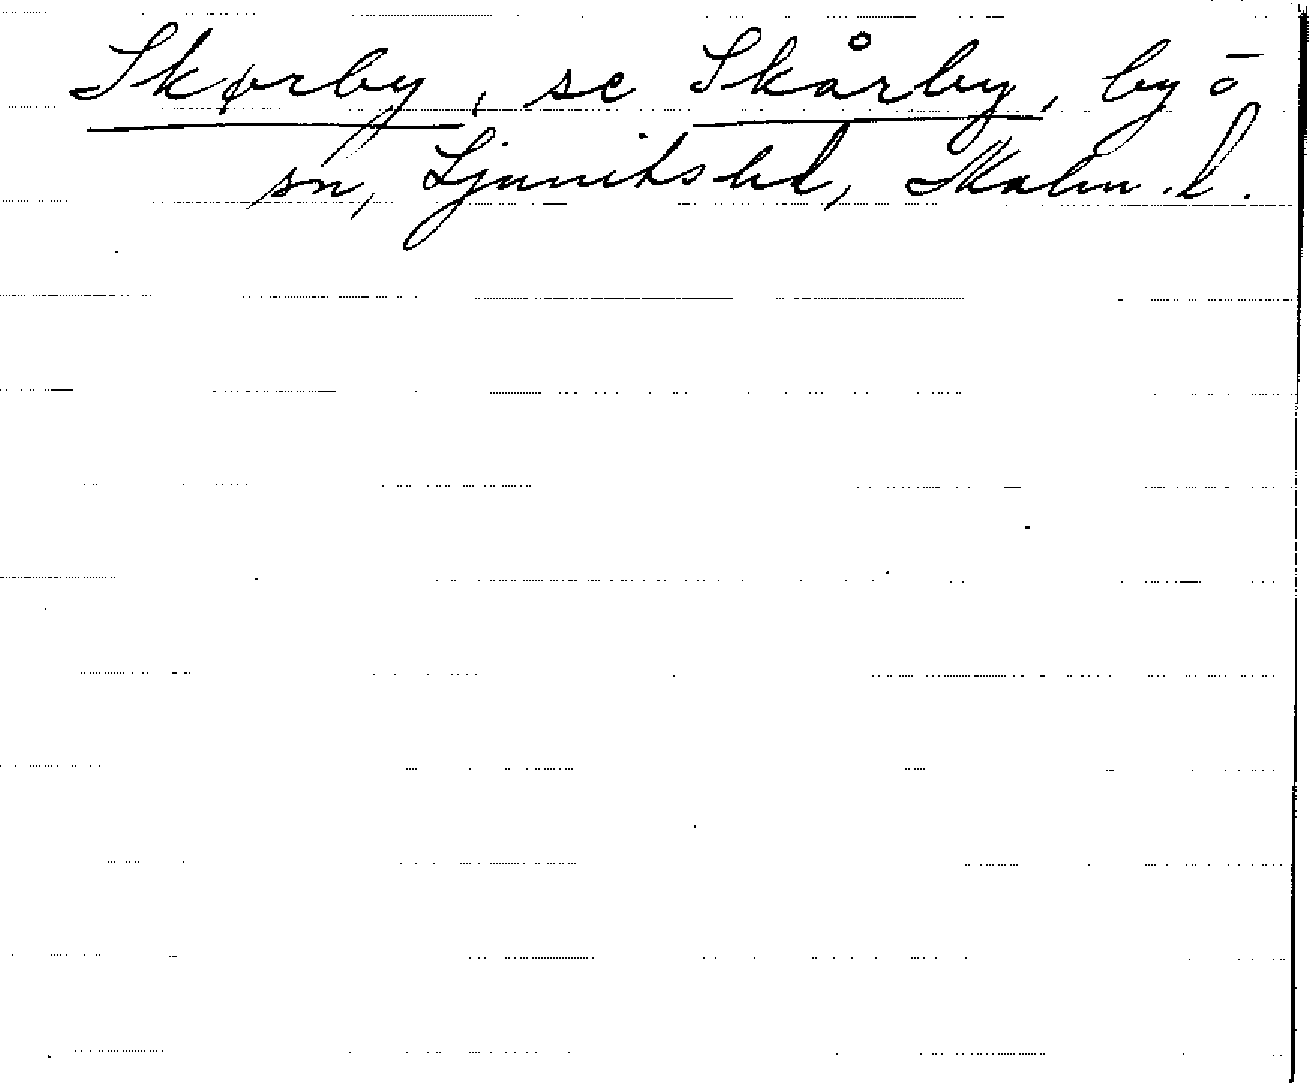 Skørby, se Skårby, by o
sn, Ljunits hd, Malm. l.